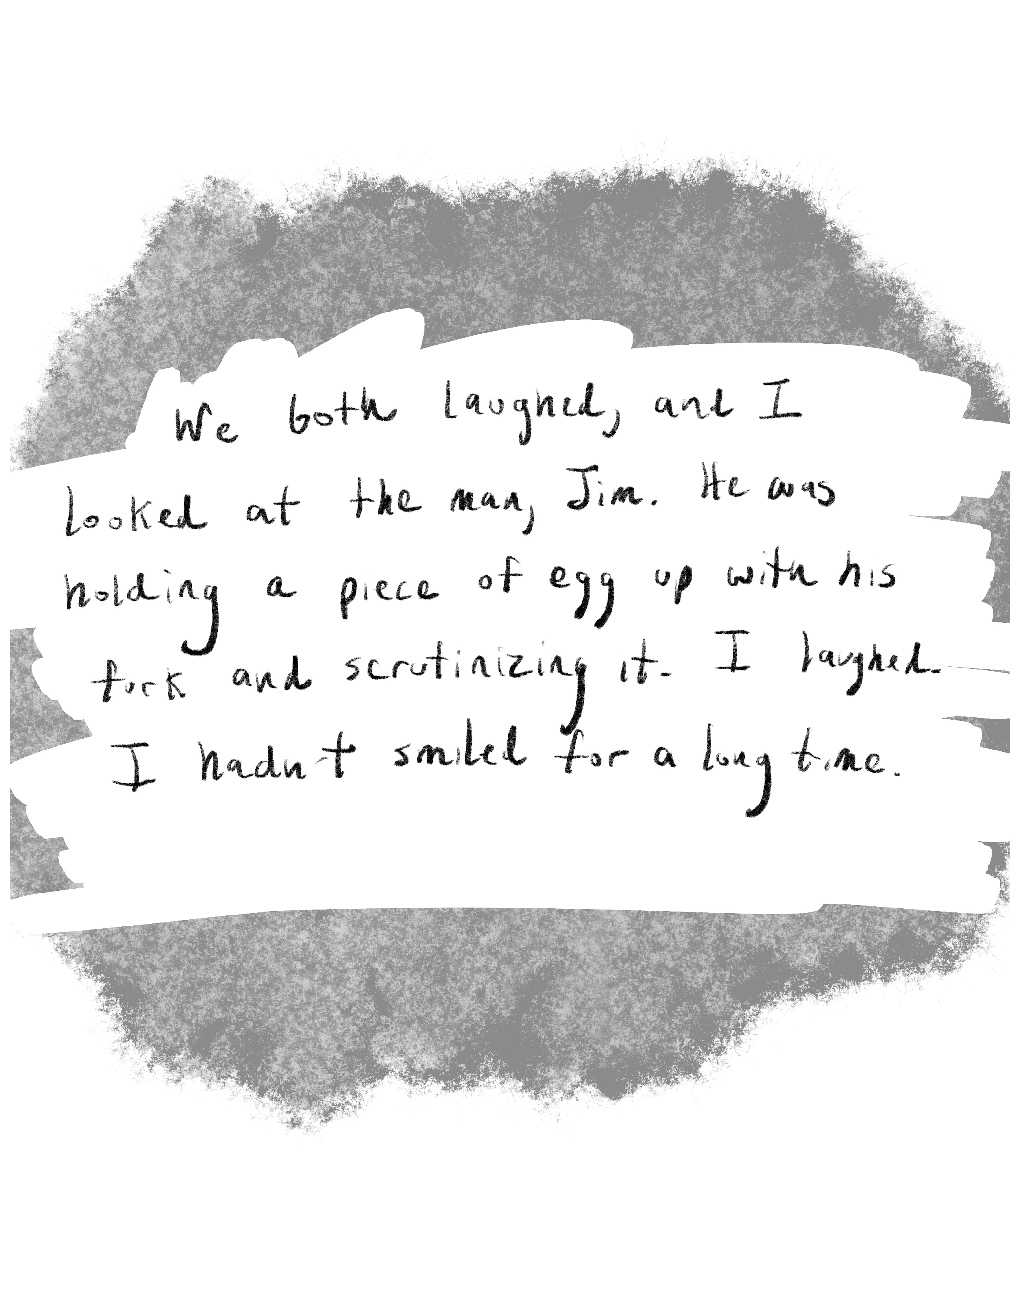 We both laughed, and I
looked at the man, Jim. He was
holding a piece of egg up with his
fork and scrutinizing it. I laughed.
I hadn't smiled for a long time.